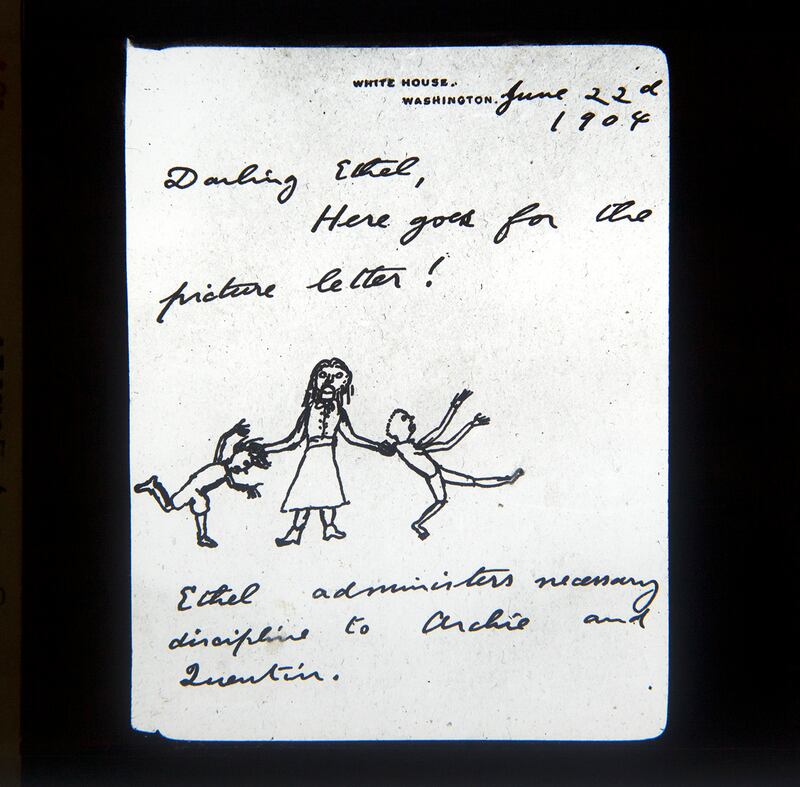 WHITE HOUSE.
WASHINGTON. June 22d
1904
Darling Ethel,
Here goes for the
picture letter!
Ethel administers necessary
discipline to Archie and
Quentin.